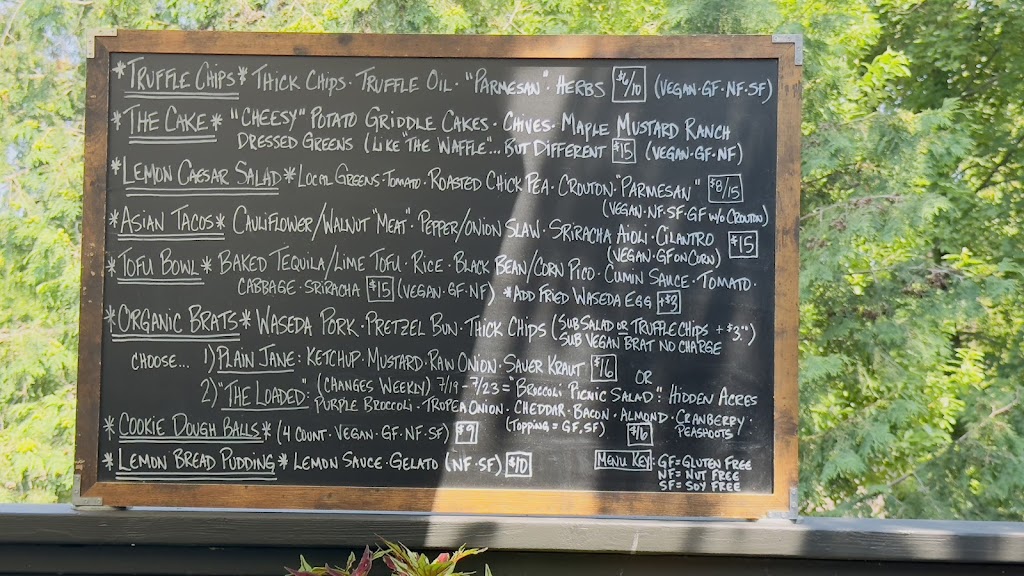 *TRUFFLE CHIPS* THICK CHIPS · TRUFFLE OIL · "PARMESAN" · HERBS $6/10 (VEGAN·GF·NF·SF)
*THE CAKE* "CHEESY" POTATO GRIDDLE CAKES · CHIVES · MAPLE MUSTARD RANCH
DRESSED GREENS (LIKE "THE WAFFLE"... BUT DIFFERENT $15 (VEGAN·GF·NF)
*LEMON CAESAR SALAD* LOCAL GREENS · TOMATO · ROASTED CHICK PEA · CROUTON · "PARMESAN" $8/15
(VEGAN·NF·SF·GF W/O CROUTON)
*ASIAN TACOS* CAULIFLOWER/WALNUT "MEAT" · PEPPER/ONION SLAW · SRIRACHA AIOLI · CILANTRO $15
(VEGAN·GF ON CORN)
*TOFU BOWL* BAKED TEQUILA/LIME TOFU · RICE · BLACK BEAN/CORN PICO · CUMIN SAUCE · TOMATO ·
CABBAGE · SRIRACHA $15 (VEGAN·GF·NF) *ADD FRIED WASEDA EGG +$3
*ORGANIC BRATS* WASEDA PORK · PRETZEL BUN · THICK CHIPS (SUB SALAD OR TRUFFLE CHIPS + $3.00)
SUB VEGAN BRAT NO CHARGE
CHOOSE... 1) PLAIN JANE: KETCHUP · MUSTARD · RAW ONION · SAUER KRAUT $16
OR
2) "THE LOADED": (CHANGES WEEKLY) 7/19 - 7/23 = "BROCCOLI PICNIC SALAD": HIDDEN ACRES
PURPLE BROCCOLI · TROPEA ONION · CHEDDAR · BACON · ALMOND · CRANBERRY ·
PEASHOOTS
(TOPPING = GF, SF) $16
*COOKIE DOUGH BALLS* (4 COUNT · VEGAN · GF · NF · SF) $9
*LEMON BREAD PUDDING* LEMON SAUCE · GELATO (NF·SF) $10
MENU KEY: GF=GLUTEN FREE
NF=NUT FREE
SF=SOY FREE